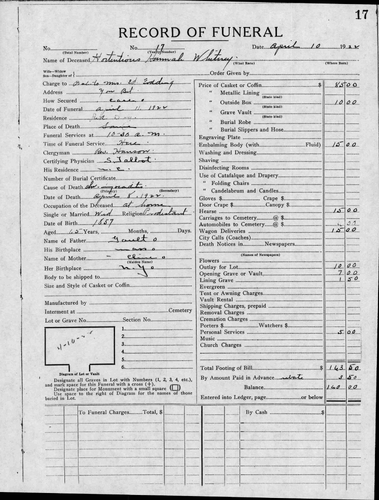 17
RECORD OF FUNERAL
No. 17 Date April 10 1922
(Total Number) (Yearly Number)
Name of Deceased Hannah
(What Race) (Where Born)
Wife—Widow
Son—Daughter of Order Given by
Charge to
Address
How Secured
Date of Funeral April 11, 1922
Residence
Place of Death
Funeral Services at 10:30 A.M.
Time of Funeral Service
Clergyman Rev. Hanson
Certifying Physician S. Talbot
His Residence
Number of Burial Certificate
Cause of Death
(Primary) (Secondary)
Date of Death April 8, 1922
Occupation of the Deceased At home
Single or Married Wid Religion
Date of Birth 1857
Aged 65 Years, Months, Days.
Name of Father
His Birthplace
Name of Mother
(Maiden Name)
Her Birthplace N.Y.
Body to be shipped to
Size and Style of Casket or Coffin
Manufactured by
Interment at Cemetery
Lot or Grave No. Section No.
1.
2.
3.
4.
5.
6.
7.
Diagram of Lot or Vault
Designate all Graves in Lot with Numbers (1, 2, 3, 4, etc.),
and mark space for this Funeral with a cross (+).
Designate place for Monument with a small square
Use space to the right of Diagram for the names of those
buried in Lot.
Price of Casket or Coffin $ 85 00
" Metallic Lining
(State Kind)
" Outside Box 10 00
(State Kind)
" Grave Vault
(State Kind)
" Burial Robe
(State Kind)
" Burial Slippers and Hose
Engraving Plate
Embalming Body (with Fluid) 15 00
Washing and Dressing
Shaving
Disinfecting Rooms
Use of Catafalque and Drapery
" Folding Chairs
" Candelabrum and Candles
Gloves $ Crape $
Door Crape $
Hearse 15 00
Carriages to Cemetery @ $
Automobiles to Cemetery @ $
Wagon Deliveries 15 00
City Calls (Coaches)
Death Notices in Newspapers
(Names of Newspapers)
Flowers
Outlay for Lot 10 00
Opening Grave or Vault 7 00
Lining Grave 1 50
Evergreen
Tent or Awning Charges
Vault Rental
Shipping Charges, prepaid
Removal Charges
Cremation Charges
Porters $ Watchers $
Personal Services 5 00
Music
Church Charges
Total Footing of Bill $ 163 50
By Amount Paid in Advance 3 50
Balance 160 00
Entered into Ledger, page or below.
To Funeral Charges Total, $ By Cash $